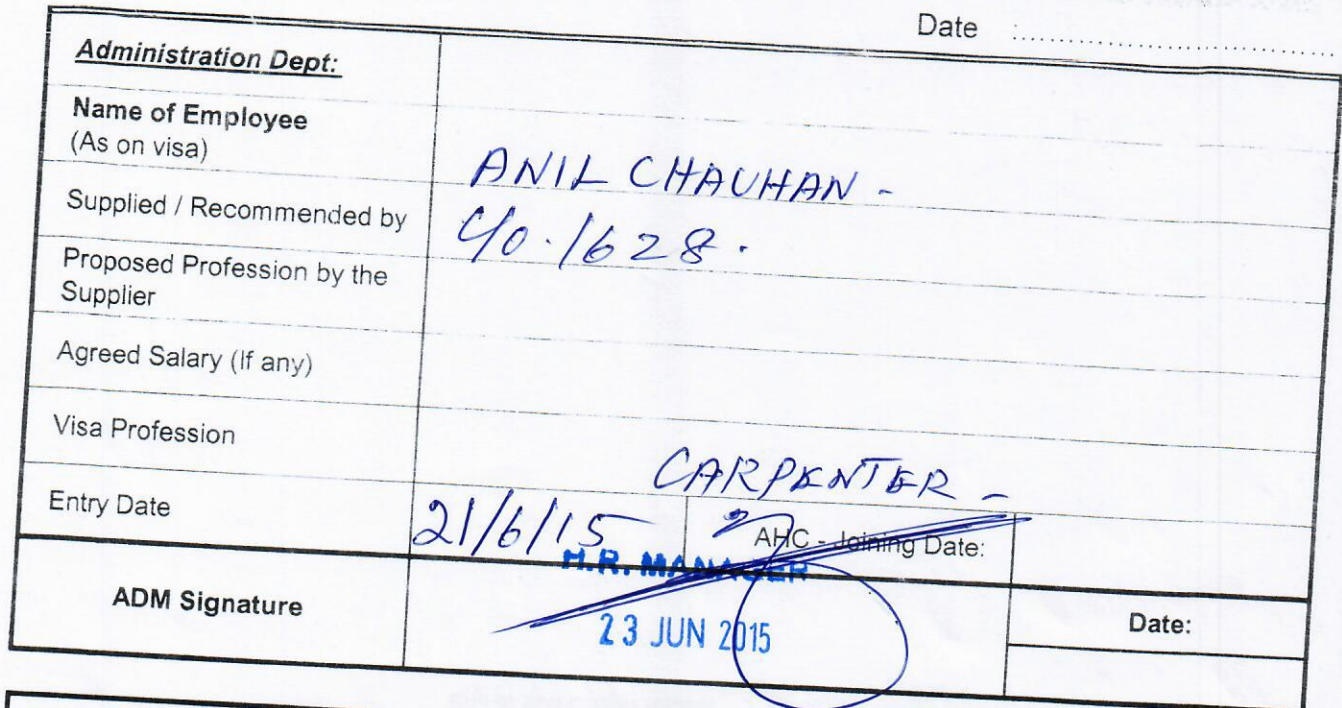 Date :..............................
Administration Dept:
Name of Employee
(As on visa)
ANIL CHAUHAN -
Supplied / Recommended by
C/o. 1628.
Proposed Profession by the
Supplier
Agreed Salary (If any)
Visa Profession
CARPENTER -
Entry Date
21/6/15
AHC - Joining Date:
H.R. MANAGER
ADM Signature
23 JUN 2015
Date: